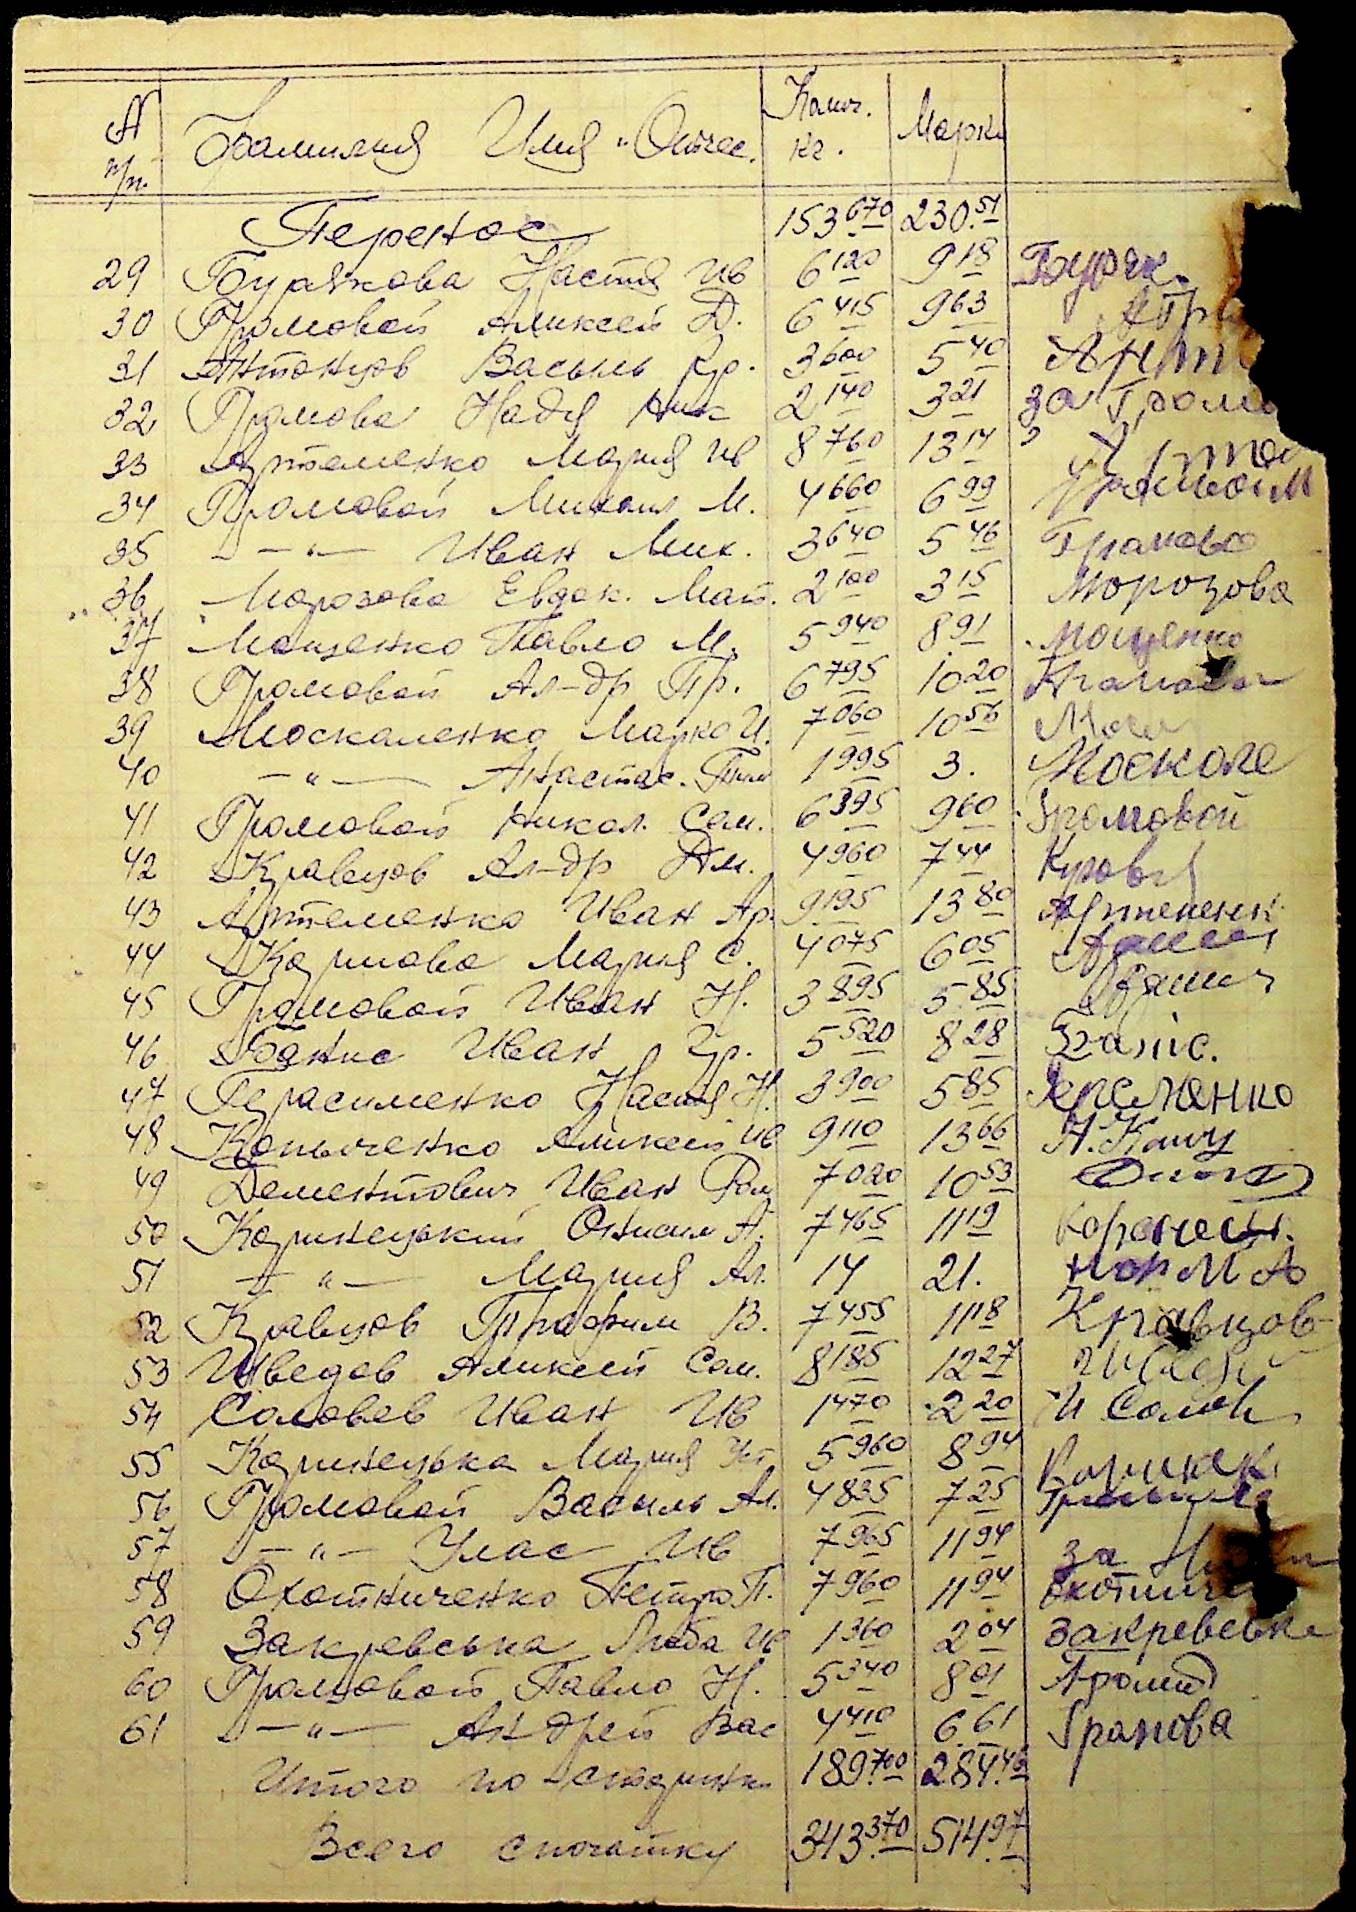 № п/п. Фамилия Имя и Отчес. Колич. кг. Марки
Перенос 153 670 230.51
29 Бурякова Настя Ив 6 120 9 18 Буряк.
30 Громовой Аликсей Д. 6 415 9 63
31 Антонцов Василь Гр. 3 600 5 40 Ант
32 Громова Надя Ник 2 140 3 21 за Громо
33 Артеменко Мария Ив 8 760 13 14
34 Громовой Михаил М. 4 660 6 99
35 —"— Иван Мих. 3 640 5 46
36 Морозова Евдок. Мат. 2 100 3 15 Морозова
37 Мощенко Павло М. 5 940 8 91 Мощенко
38 Громовой Ал-др Гр. 6 795 10 20
39 Москаленко Марко И. 7 060 10 56
40 —"— Анастас. 1 995 3. Москале
41 Громовой Никол. Сем. 6 395 9 60 Громовой
42 Кравцов Ал-др Дм. 4 960 7 44
43 Артеменко Иван Ар. 9 195 13 80 Артеменк
44 Карпова Мария С. 4 075 6 05
45 Громовой Иван Н. 3 895 5.85
46 Баніс Иван Гр. 5 520 8 28 Баніс.
47 Герасименко Настя Н. 3 900 5 85
48 Копыченко Аликсей Ив 9 110 13 66
49 Дементович Иван Ром 7 020 10 53
50 Коринецький Онисим А. 7 465 11 19
51 —"— Мария Ал. 14 21. Кор М А
52 Кравцов Трофим В. 7 455 11 18 Кравцов
53 Шведов Аликсей Сем. 8 185 12 27
54 Соловев Иван Ив 1 470 2 20 И Солов
55 Коринецька Мария 5 960 8 94
56 Громовой Василь Ал. 4 835 7 25
57 —"— Улас Ив 7 965 11 94 за
58 Охотниченко Петро П. 7 960 11 94
59 Закревська Люба Ив 1 360 2 04 Закревська
60 Громовой Павло Н. 5 340 8 01
61 —"— Андрей Вас 4 410 6.61 Грамова
Итого по сторинке 189.700 284.46
Всего спочатку 343.370 514.97